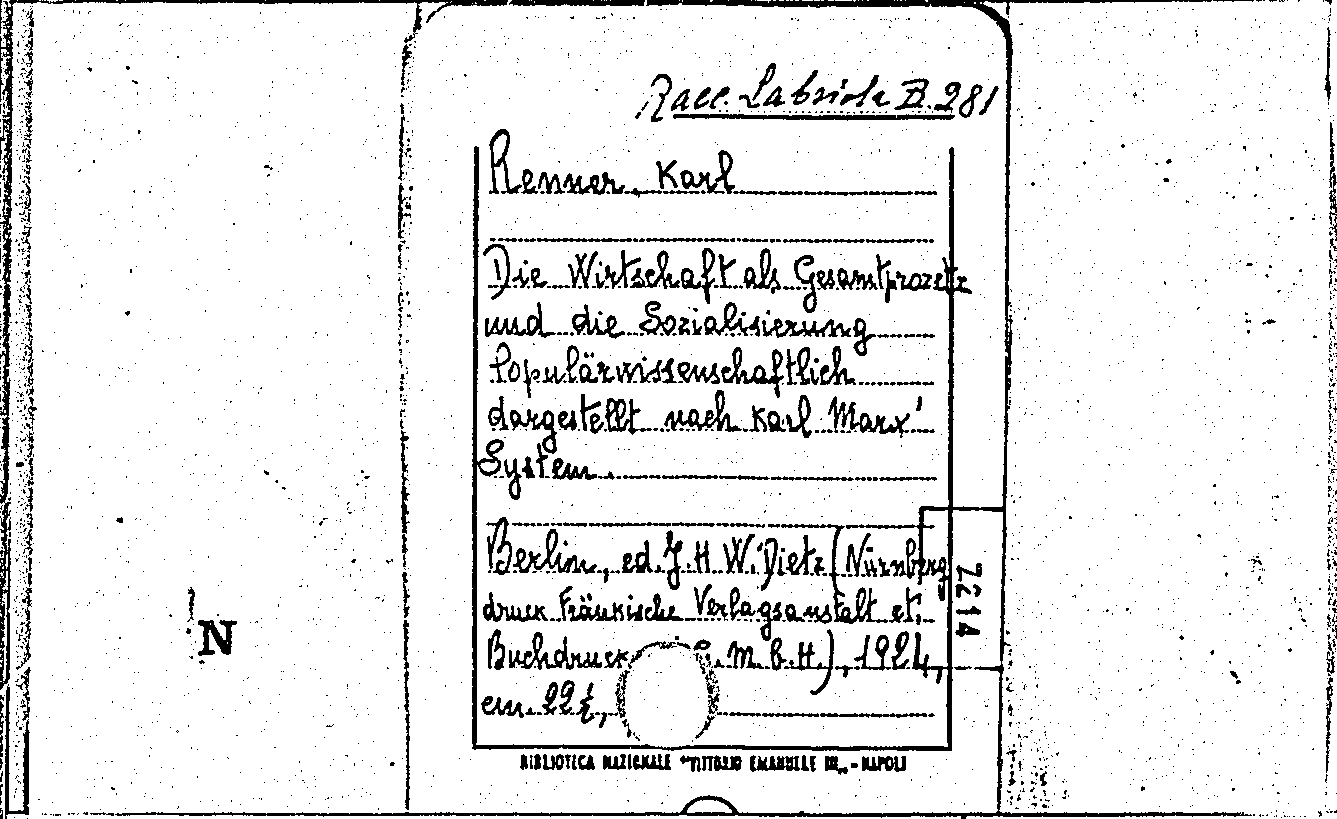 Racc. Labriola B. 281
Renner, Karl
Die Wirtschaft als Gesamtprozess
und die Sozialisierung
Populärwissenschaftlich
dargestellt nach Karl Marx'
System.
Berlin, ed. J. H. W. Dietz (Nürnberg
druck Fränkische Verlagsanstalt et.
Buchdruck G. m. b. H.), 1924,
cm. 22½,
7614
N
BIBLIOTECA NAZIONALE "VITTORIO EMANUELE III" - NAPOLI